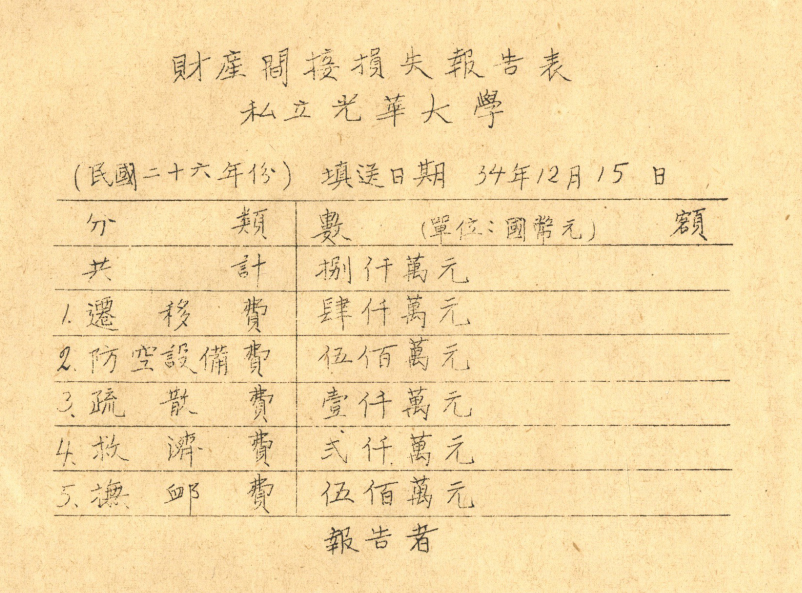 財產間接損失報告表
私立光華大學
(民國二十六年份) 填送日期 34年12月15日
分類 數(單位:國幣元)額
共計 捌仟萬元
1.遷移費 肆仟萬元
2.防空設備費 伍佰萬元
3.疏散費 壹仟萬元
4.救濟費 弍仟萬元
5.撫卹費 伍佰萬元
報告者